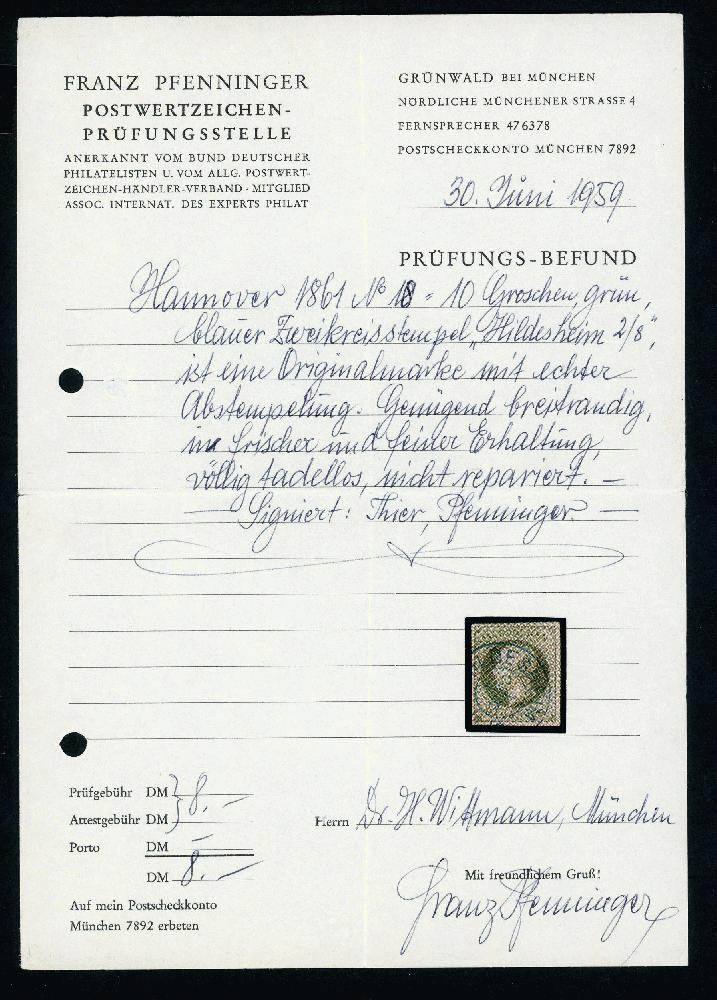 FRANZ PFENNINGER
POSTWERTZEICHEN-
PRÜFUNGSSTELLE
ANERKANNT VOM BUND DEUTSCHER
PHILATELISTEN U. VOM ALLG. POSTWERT-
ZEICHEN-HÄNDLER-VERBAND · MITGLIED
ASSOC. INTERNAT. DES EXPERTS PHILAT
GRÜNWALD BEI MÜNCHEN
NÖRDLICHE MÜNCHENER STRASSE 4
FERNSPRECHER 476378
POSTSCHECKKONTO MÜNCHEN 7892
30. Juni 1959
PRÜFUNGS-BEFUND
Hannover 1861 No 18 = 10 Groschen, grün,
blauer Zweikreisstempel „Hildesheim 2/8",
ist eine Originalmarke mit echter
Abstempelung. Genügend breitrandig,
in frischer und feiner Erhaltung,
völlig tadellos, nicht repariert. —
— Signiert: Thier, Pfenninger. —
Prüfgebühr DM
8. —
Attestgebühr DM
Porto DM —
DM 8. —
Auf mein Postscheckkonto
München 7892 erbeten
Herrn Dr. H. Wittmann, München
Mit freundlichem Gruß!
Franz Pfenninger